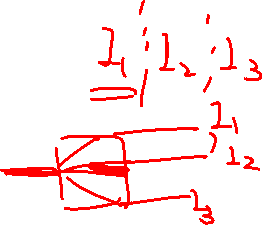 I₁ : I₂ : I₃
I₁
I₂
I₃